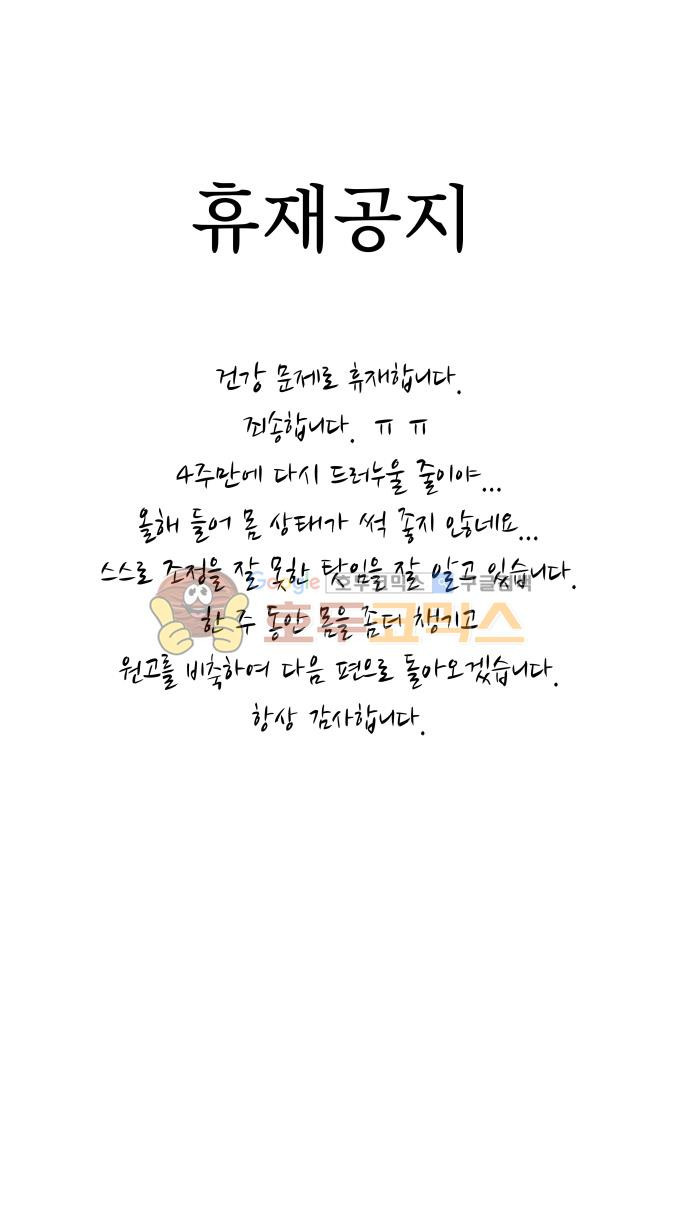 휴재공지
건강 문제로 휴재합니다.
죄송합니다. ㅠㅠ
4주만에 다시 드러누울 줄이야...
올해 들어 몸 상태가 썩 좋지 않네요...
스스로 조정을 잘 못한 탓임을 잘 알고 있습니다.
Google 호두코믹스 구글검색
한 주 동안 몸을 좀더 챙기고
호두코믹스
원고를 비축하여 다음 편으로 돌아오겠습니다.
항상 감사합니다.